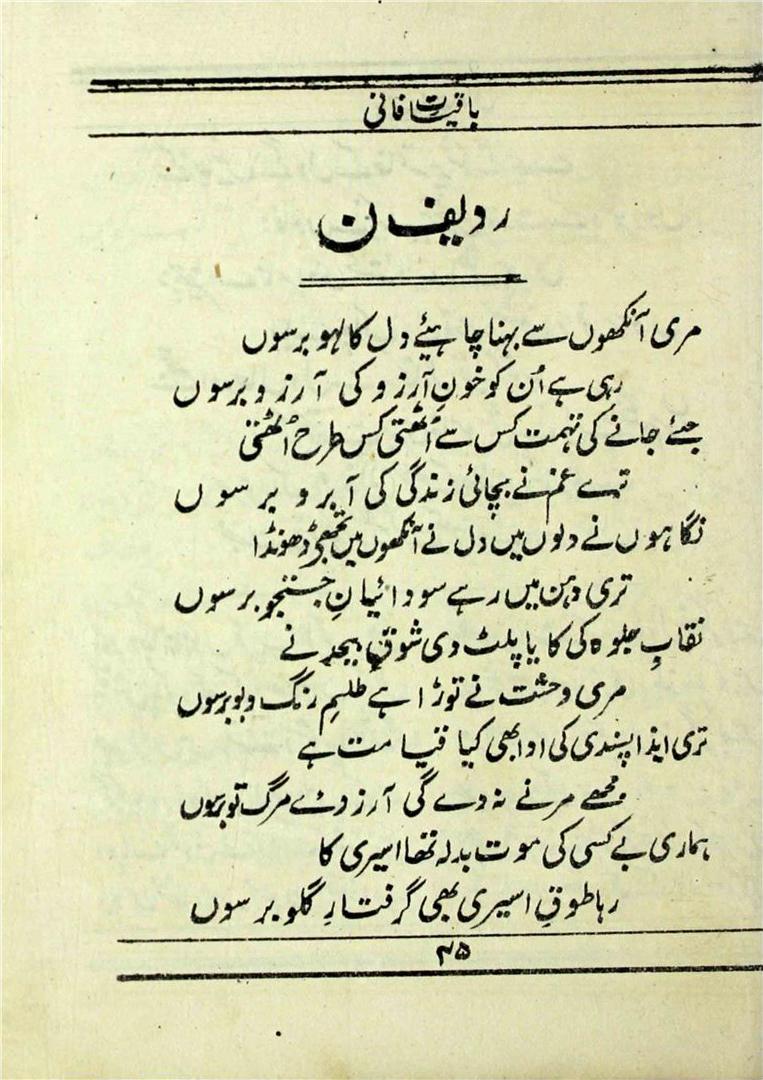 باقیات فانی
ردیف ن
مری آنکھوں سے بہنا چاہیئے دل کا لہو برسوں
رہی ہے اُن کو خونِ آرزو کی آرزو برسوں
جئے جانے کی تہمت کس سے اُٹھتی کس طرح اُٹھتی
ترے غم نے بچائی زندگی کی آبرو برسوں
نگاہوں نے دلوں میں دل نے آنکھوں میں تجھے ڈھونڈا
تری دہن میں رہے سودائیانِ جستجو برسوں
نقابِ جلوہ کی کایا پلٹ دی شوقِ بیحد نے
مری وحشت نے توڑا ہے طلسمِ رنگ و بو برسوں
تری ایذا پسندی کی ادا بھی کیا قیامت ہے
مجھے مرنے نہ دے گی آرزوئے مرگ تو برسوں
ہماری بے کسی کی موت بدلہ تھا اسیری کا
رہا طوقِ اسیری بھی گرفتارِ گلو برسوں
۳۵